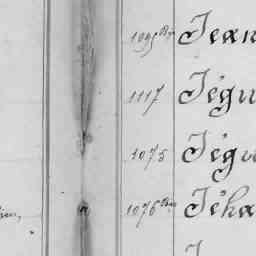 1095 Bis Jean
1117 Jégu
1075 Jégu
1076 Bis Jéha